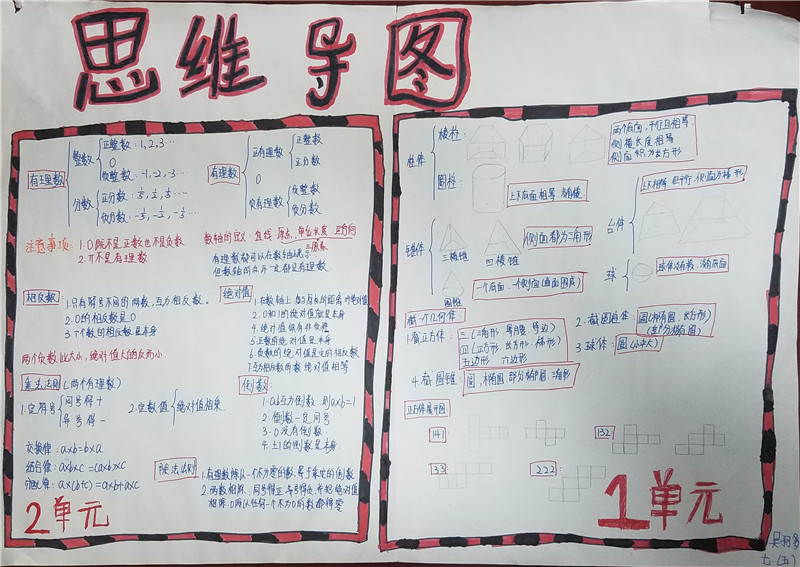 思维导图
有理数
整数
正整数:1,2,3…
0
负整数:-1,-2,-3…
分数
正分数:
负分数:
有理数
正有理数
正整数
正分数
0
负有理数
负整数
负分数
注意事项:
1.0既不是正数也不是负数
2.π不是有理数
数轴的定义:直线 原点,单位长度 正方向
三要素
有理数都可以在数轴上表示
但数轴的点不一定都是有理数
相反数
1.只有符号不同的两数,互为相反数。
2.0的相反数是0
3.
个数的相反数是本身
两个负数比大小,绝对值大的反而小.
绝对值
1.在数轴上
与原点的距离叫绝对值
2.0和1的绝对值就是本身
4.绝对值
非负性
5.正数的绝对值是本身
6.负数的绝对值是它的相反数
7.互为相反数的两数绝对值相等
乘法法则
(两个有理数)
1.定符号
同号得+
异号得-
2.定数值
绝对值相乘.
交换律:a×b=b×a
结合律:a×b×c=(a×b)×c
分配律:a×(b+c)=a×b+a×c
倒数:
1.ab互为倒数 则a×b=1
2.倒数一定同号
3.0没有倒数.
4.±1的倒数是本身.
除法法则
1.有理数除以一个不为零的数,等于乘它的倒数
2.两数相除,同号得正,异号得负,并把绝对值
相除.0除以任何一个不为0的数都得零
2单元
柱体
棱柱:
两个底面,平行且相等
侧棱长度相等
侧面积为长方形
圆柱:
上下底面相等
锥体
三棱锥
四棱锥
侧面都为三角形
圆锥
一个底面,一个侧面(曲面图底)
台体
球
截一个几何体
1.截正方体:
三(三角形,等腰,等边)
四(正方形,长方形,梯形)
五边形 六边形
2.截圆柱体:
圆(椭圆,长方形)
3.球体:
圆(
大)
4.截圆锥:
圆,椭圆,部分椭圆,三角形
正方体展开图
141:
132:
33:
222:
1单元
七.(五)